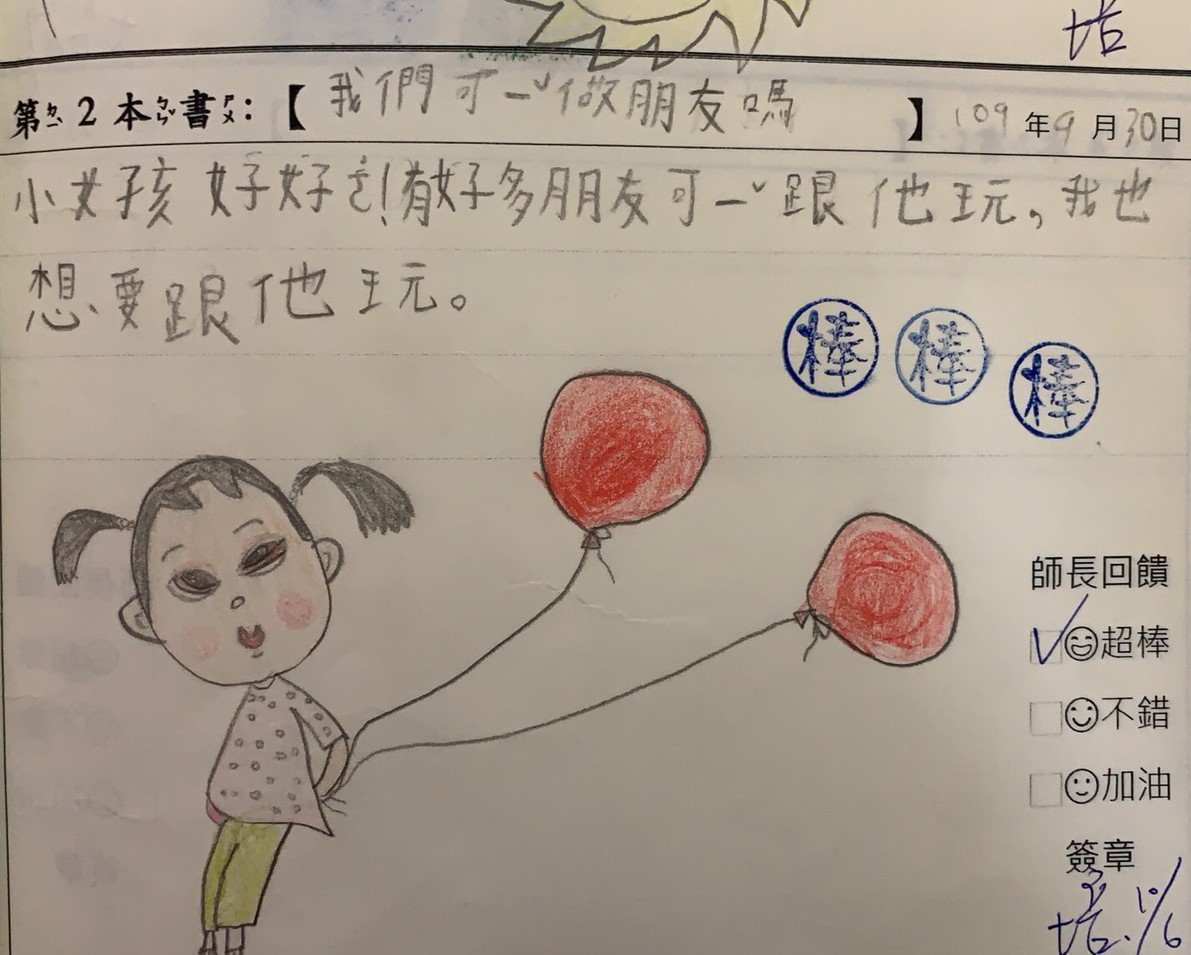 培
第2本書:【我們可ㄧˇ做朋友嗎】109年9月30日
小女孩好好!有好多朋友可ㄧˇ跟他玩,我也
想要跟他玩。
棒 棒 棒
師長回饋
超棒
不錯
加油
簽章
培 10/6